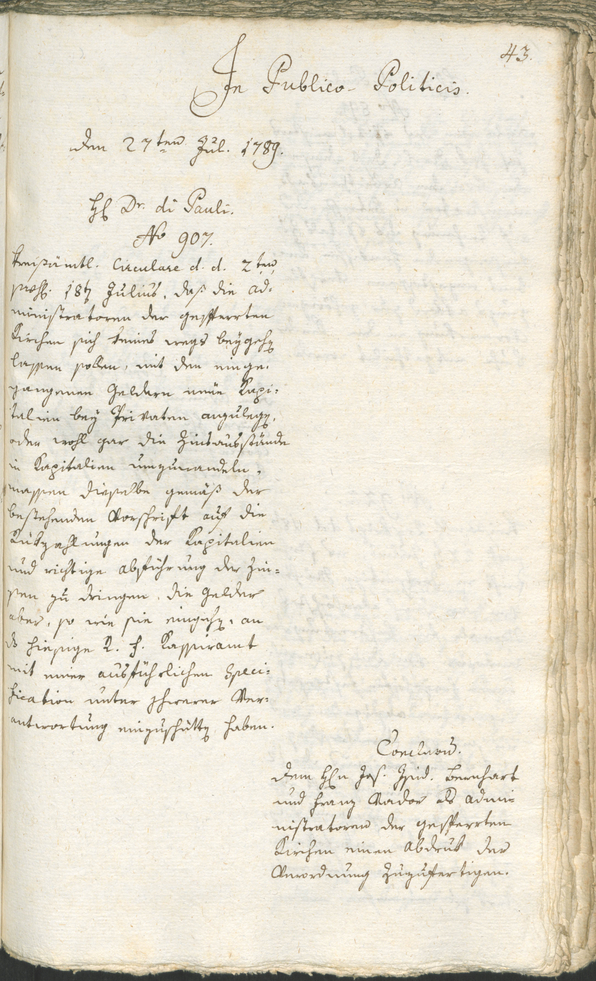 43.
In Publico-Politicis.
den 27ten Jul. 1789.
H Dr. di Pauli.
No 907.
Kreisämtl. Circulare d. d. 2ten
präs. 18t Julius, daß die ad-
ministratoren der gesperrten
Kirchen sich keines wegs beygehen
lassen sollen, mit den einge-
gangenen Geldern neue Kapi-
talien bey Privaten anzulegen,
oder wohl gar die Zinsausstände
in Kapitalien umzuwandeln,
massen dieselbe gemäß der
bestehenden Vorschrift auf die
Rükzahlungen der Kapitalien
und richtige abführung der Zin-
sen zu dringen, die Gelder
aber, so wie sie eingehen, an
das hiesige K. K. Kammeramt
mit einer ausführlichen Speci-
fication unter schwerer Ver-
antwortung einzuschütten haben.
Conclusum.
dem Hn Jos. Ignd. Bernhart
und Franz Nador als admi-
nistratoren der gesperrten
Kirchen einen abdruk der
Verordnung zuzufertigen.